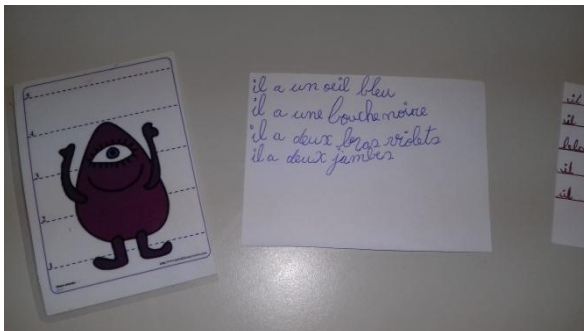 5
4
3
2
1
il a un oeil bleu
il a une bouche noire
il a deux bras violets
il a deux jambes
il
il
il
il